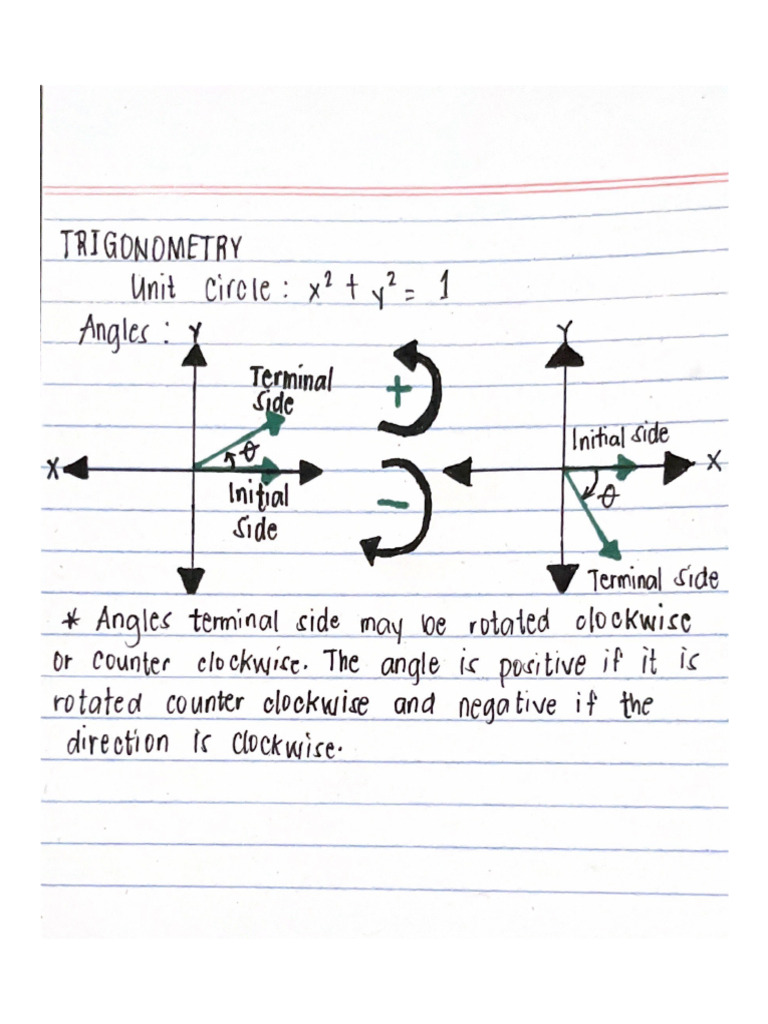 TRIGONOMETRY
Unit Circle: x² + y² = 1
Angles:
Y
Terminal
side
θ
X
Initial
side
+
-
Y
Initial side
X
θ
Terminal side
* Angles terminal side may be rotated clockwise
or counter clockwise. The angle is positive if it is
rotated counter clockwise and negative if the
direction is clockwise.